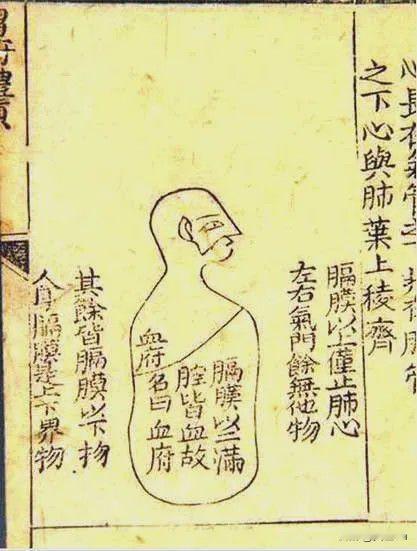 心長在氣管之
之下心與肺葉上稜齊
膈膜以上僅止肺心
左右氣門餘無他物
膈膜以上滿
腔皆血故
名曰血府
血府
其餘皆膈膜以下物
人身膈膜是上下界物